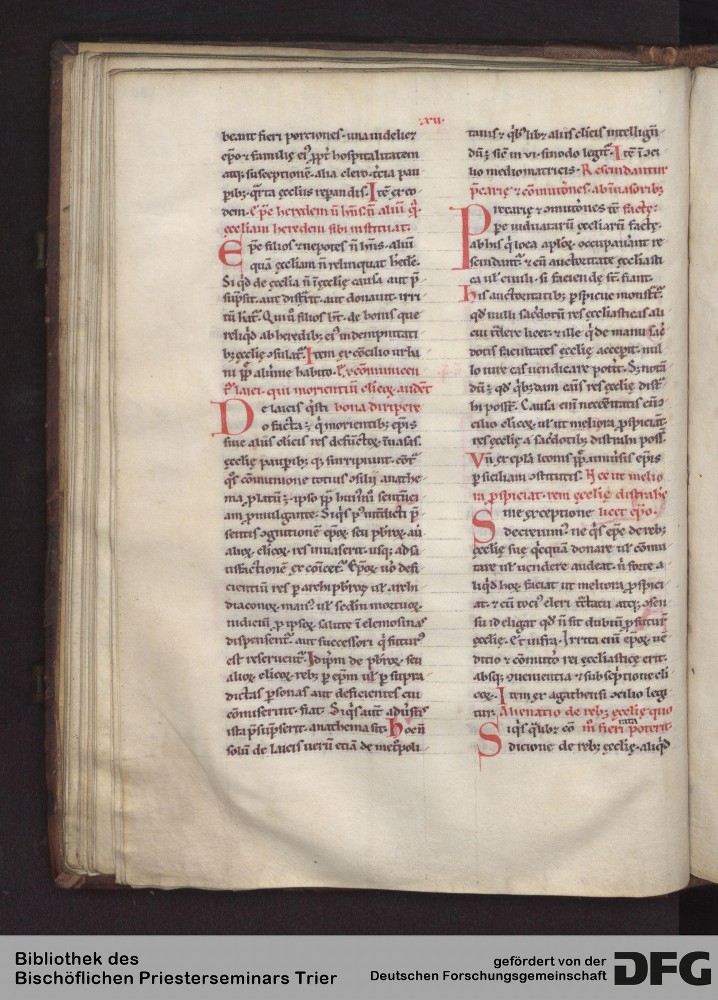 .xii.
beant fieri portiones. una videlicet
epō & familię ei᷒ ꝓpt hospitalitatem
atq; susceptionē. alia clero. t̄cia pau
ꝑib;. q̄rta ęccliis repandis. Itē ex eo
dem. Eps̄ heredem n̄ hn̄s. n̄ aliū q̄
ęccliam heredem sibi instituat.
Eps̄ filios & nepotes n̄ hn̄s. aliū
quā ęccliam n̄ relinquat hedē.
Si qd de ęcclia n̄ ī ęcclię causa aut p̄
sūpsit. aut distx̄it. aut donauit. irri
tū hat̄. Qui ū filios hn̄t. de bonis que
reliqd ab heredib; ei᷒ indempnitati
b; ęcclię ɔsulat̄. Item ex cōcilio urba
ni pp̄ aluernię habito. Ut excōmunicen
t̄ laici. qui morientiū clicoꝝ audēt
De laicis q̄sti bona diripere
o facta ē. q̄ morientib; ep̄is
siue aliis clicis res defūctoꝝ īuasas.
ęcclię pauꝑib; q; surripiunt. cōtͣ
q̄s cōmunione totius ɔsilii anathe
ma ꝓlatū ē. ipso pp̄ hui᷒mi sentnci
am ꝓmulgante. Siq̄s ħ n̄tilicti p̄
sentis ɔgnitionē ep̄oꝝ seu pbroꝝ aū
alioꝝ clicoꝝ res inuaserit. usq; ad sa
tisfactionē excōicet̄. Ep̄oꝝ uō defi
cientiū res ꝑ archipbroꝝ ul' archi
diaconoꝝ man᷒ ul' sedm̄ mortuoꝝ
iudiciū ꝓ ipsoꝝ salute ī elemosinas
dispensent̄. aut successori q̄ futur᷒
est reseruent̄. Idipm̄ de pbroꝝ seu
alioꝝ clicoꝝ reb; ꝑ ep̄m ul' ꝑ supra
dictas ꝑsonas aut deficientes cui
cōmiserint. fiat. Siq̄s aut̄ adūsus
ista p̄sūpserit. anathema sit. Hoc n̄
solū de laicis uerū etiā de met̓poli
tanis & q̄b;lib; aliis clicis intelligū
dū ē sic̄ in vi. sinodo legit̄. Itē ī ɔci
lio mediomatricis. Rescindantur
p̄carię & cōmutōnes. ab īuasorib;
Precarię & ɔmutōnes tē factę:
ꝑpe uiduataru ęccliarū factę.
ab his q̄ loca aploꝝ occupauūnt re
scindant̄. & cū auctoritate ęccliasti
ca ul' ciuili. si faciendę st̄. fiant.
His auctoritatib; ꝑspicue monstr̄
qd nulli sacdotū res ęccliasticas ali
cui t̄dere licet. & ille q̄ de manu sac̄
dotis facultates ęcclię accepit. nul
lo iure eas uendicare potit̄. Sz notā
dū ē qd q̄b;dam caūs res ęcclię dist̄
hi poss̄t. Causa eni necessitatis cū ɔ
cilio clicoꝝ. ut ut meliora ꝓspiciat
res ęcclię a sacdotib; distrahi poss̄t.
Vn̄ ex epl̄a leonis pp̄ uniūsis ep̄is
ꝑ siciliam ɔstitutis. Hec ut melio
ra ꝓspiciat. rem ęcclię distrahe
Sine exceptione licet epō.
decreuim᷒ ne q̄s ep̄c de reb;
ęcclię suę q̄cquā donare ul' cōmu
tare ul' uendere audeat. n̄ forte a
liq̄d hoꝝ faciat ut meliora ꝓspici
at. & cū toci᷒ cleri t̄ctatu atq; ɔsen
su id eligat qd n̄ sit dubiū ꝓfuturū
ęcclię. Et infra. Irrita enī ep̄oꝝ uē
ditio & cōmutō rei ęccliasticę erit.
absq; ɔniuentia & subsc̄ptione cli
coꝝ. Item ex agathensi ɔcilio legi
tur. Alienatio de reb; ęcclię quo
m̄ fieri rata poterit.
Siq̄s q̄lib; cō
dicione de reb; ęcclię. aliq̄d
Bibliothek des
Bischöflichen Priesterseminars Trier
gefördert von der
Deutschen Forschungsgemeinschaft
DFG